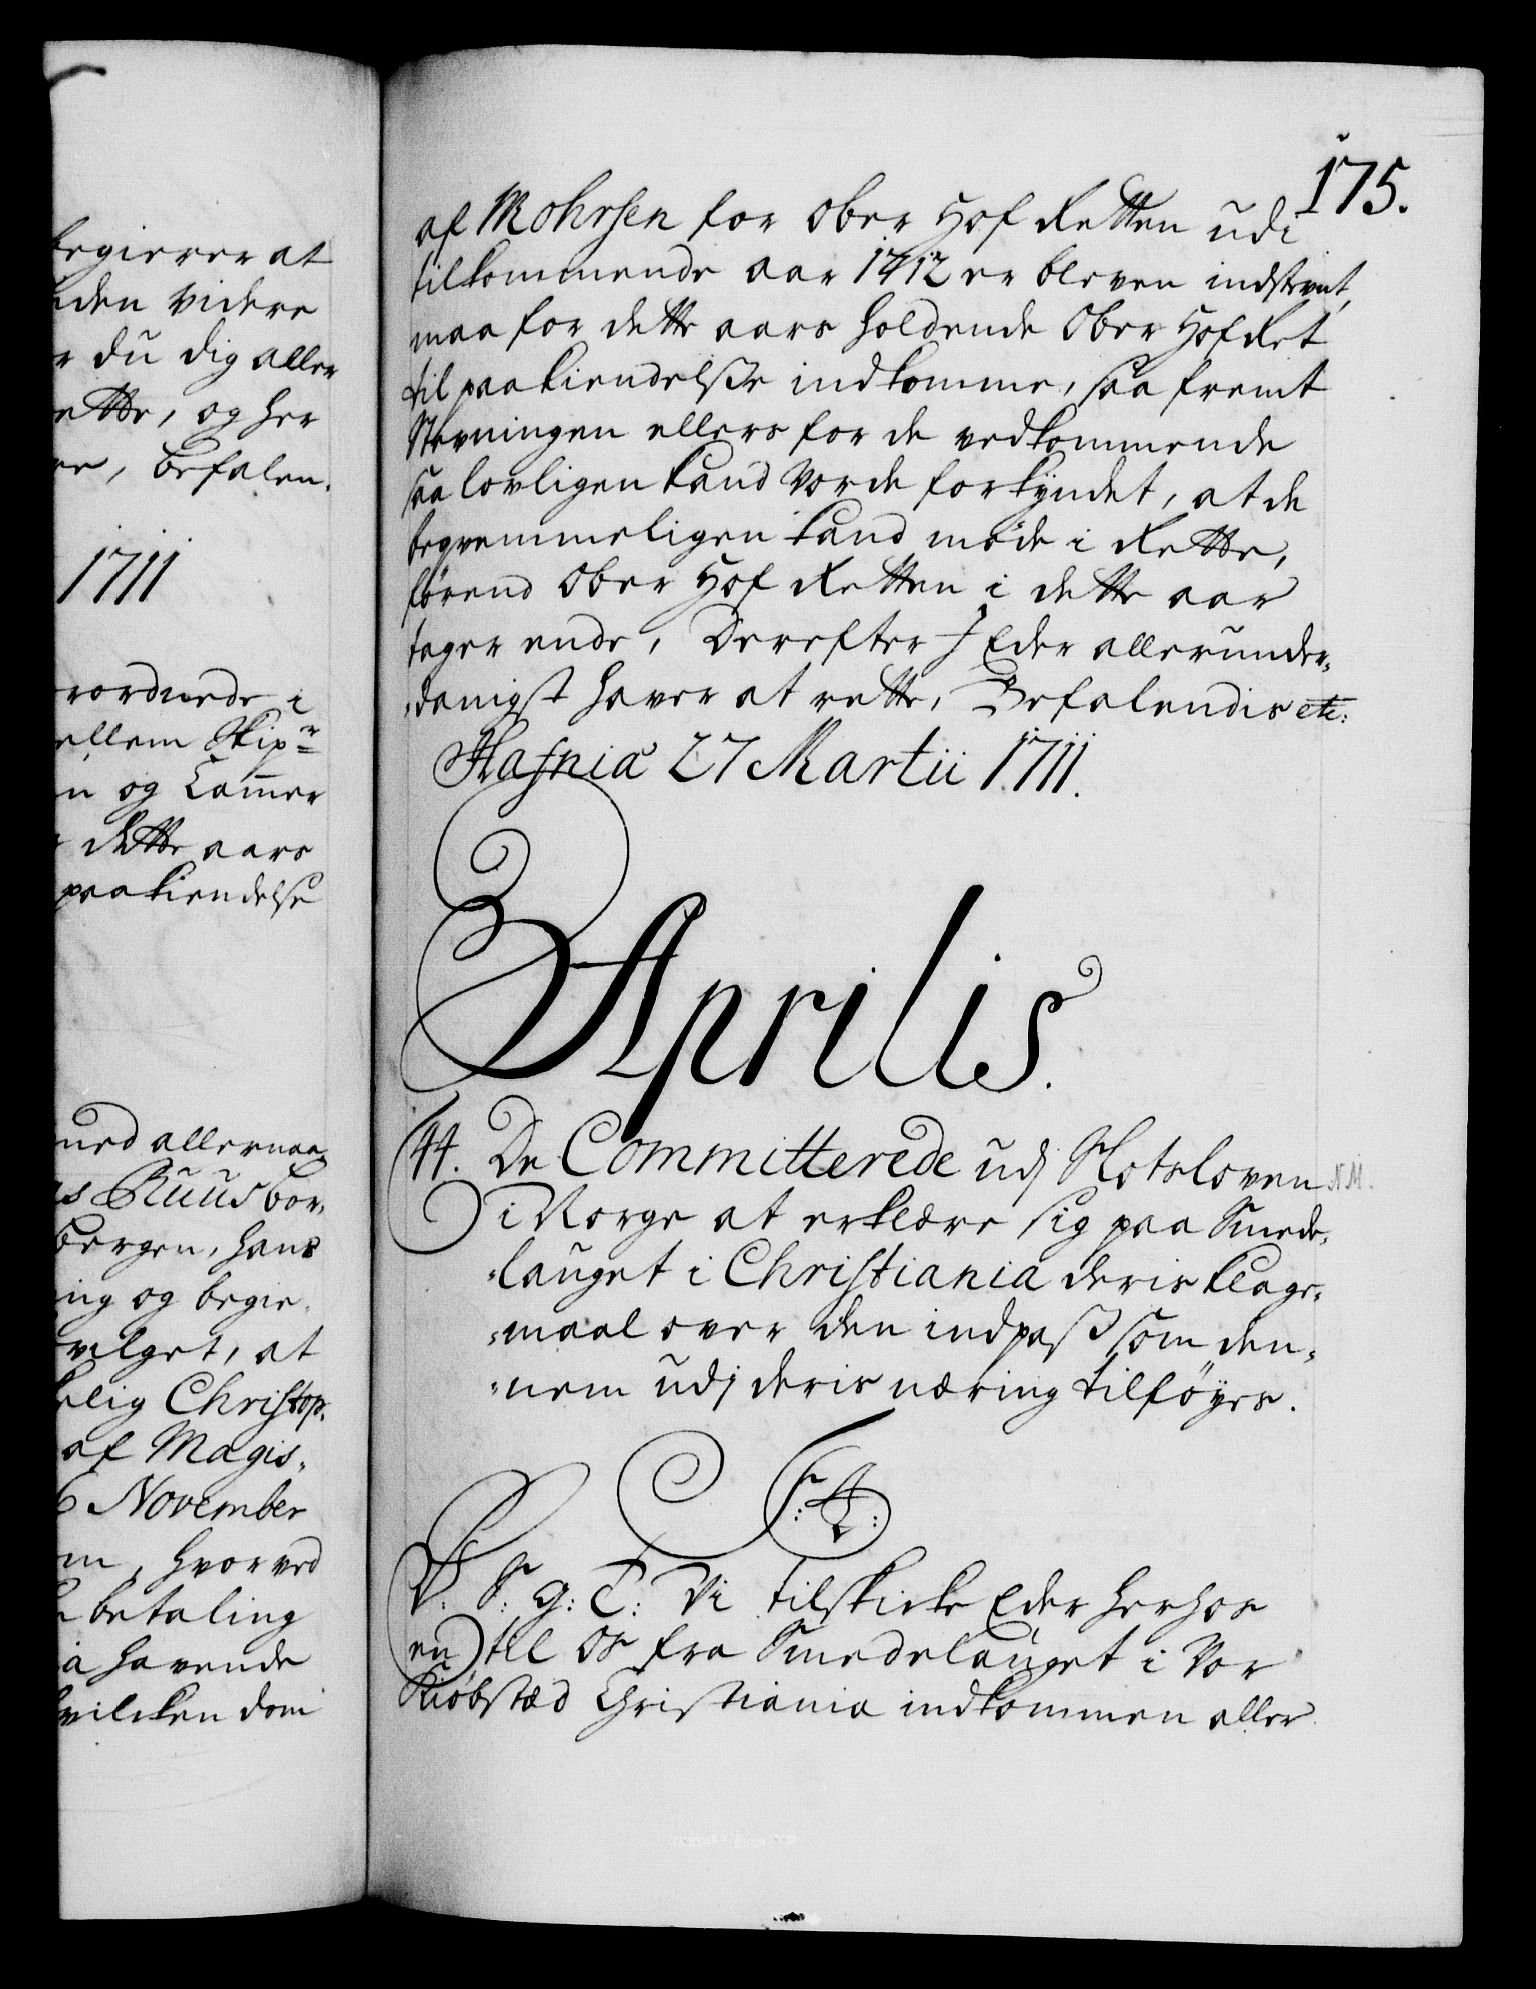 begierer at
den videre
r du dig aller
ette, og her
re, befalen.
1711
rordnede i
ellem Skipr
n og Cammer
dette aars
paakiendelse
med allernaa-
Ruus bor,
bergen, hans
ing og begie,
vilget, at
elig Christop.
af Magis,
6 November
m, hvorved
betaling
a havende
hvilcken dom
175.
af Mohrsen for Ober Hof Retten udi
tilkommende aar 1712 er bleven indstevnt,
maa for dette aars holdende Ober Hof Ret
til paakiendelsse indkomme, saa fremt
Stevningen ellers for de vedkommende
saa lovligen kand vorde forkyndet, at de
beqvemmeligen kand møde i Rette,
førend Ober Hof Retten i dette aar
tager ende, Derefter I Eder allerunder-
danigst haver at rette, Befalendis etc:
Hafniæ 27 Martii 1711.
Aprilis.
44. De Committerede udj Slotsloven N.M.
i Norge at erklære sig paa Smede-
lauget i Christiania deris klage-
maal over den indpas som den-
nem udj deris næring tilføyes.
F: 4:
V: S: G: T: Vi tilskicke Eder herhos
en til Os fra Smedelauget i Vor
Kiøbstæd Christiania indkommen aller